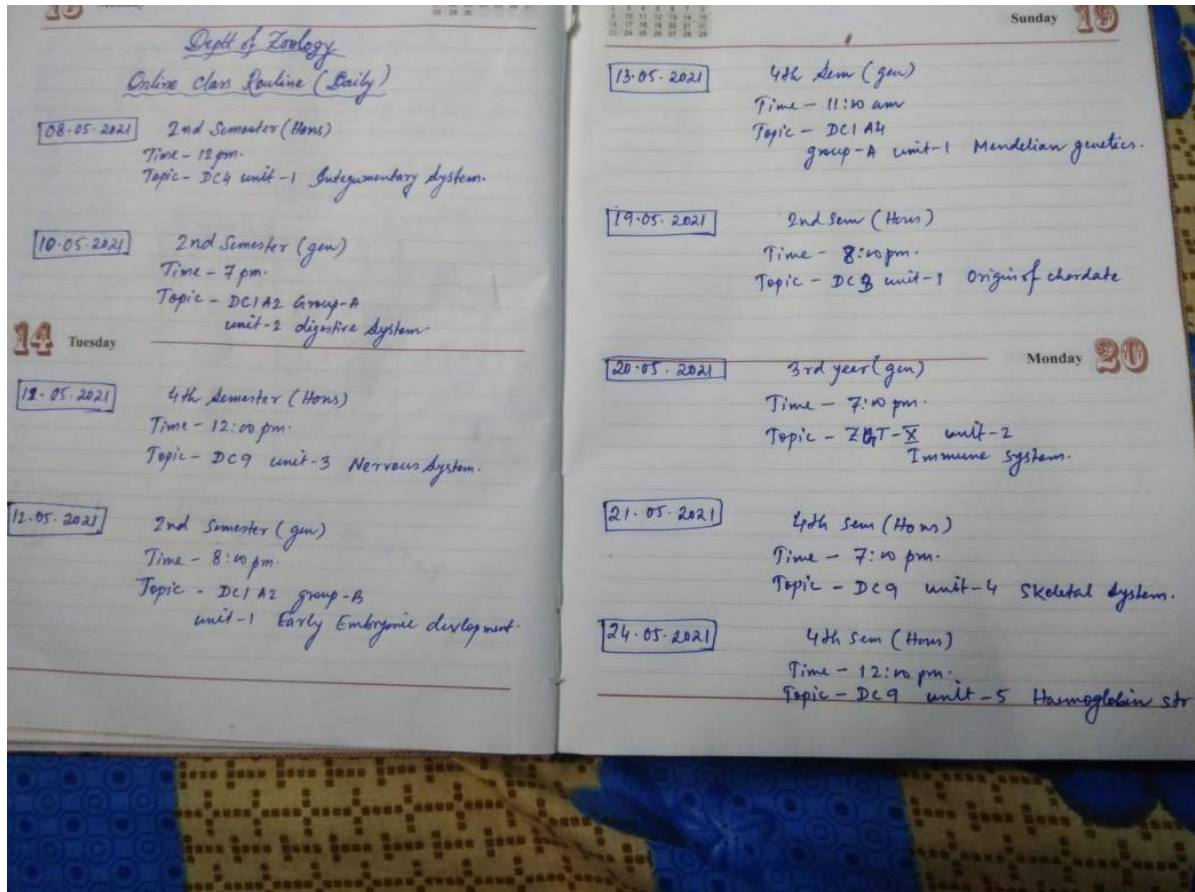 Deptt of Zoology
Online Class Routine (Daily)
08.05.2021 2nd Semester (Hons)
Time - 12 pm.
Topic - DC4 unit-1 Integumentary System.
10.05.2021 2nd Semester (gen)
Time - 7 pm.
Topic - DC1A2 Group-A
unit-2 digestive System.
14 Tuesday
12.05.2021 4th Semester (Hons)
Time - 12:00 pm.
Topic - DC9 unit-3 Nervous System.
12.05.2021 2nd Semester (gen)
Time - 8:00 pm.
Topic - DC1A2 group-B
unit-1 Early Embryonic devlopment.
Sunday 19
13.05.2021 4th Sem (gen)
Time - 11:00 am
Topic - DC1A4
group-A unit-1 Mendelian genetics.
19.05.2021 2nd Sem (Hons)
Time - 8:00 pm.
Topic - DC3 unit-1 Origin of chordate
Monday 20
20.05.2021 3rd year (gen)
Time - 7:00 pm.
Topic - ZGT-X unit-2
Immune system.
21.05.2021 4th Sem (Hons)
Time - 7:00 pm.
Topic - DC9 unit-4 Skeletal System.
24.05.2021 4th Sem (Hons)
Time - 12:00 pm.
Topic - DC9 unit-5 Haemoglobin str